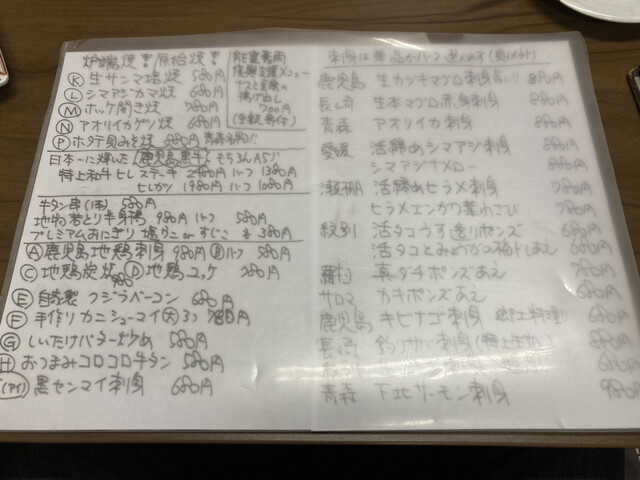 炉端焼 原始焼
Ⓚ 生サンマ塩焼 580円
Ⓛ シマアジカマ焼 680円
Ⓜ ホッケ開き焼 780円
Ⓝ アオリイカゲソ焼 680円
Ⓟ ホタテ貝みそ焼 880円 青森名物!!
能登
復興支援メニュー
揚げ出し
700円
日本一に輝いた 鹿児島黒牛 もちろんA5!!
特上和牛ヒレステーキ 2480円 ハーフ 1380円
ヒレカツ 1980円 ハーフ 1080円
牛タン串(1本) 580円
地物若とり半身揚 980円 ハーフ 580円
プレミアムおにぎり 塩カニorすじこ 各380円
Ⓐ 鹿児島地鶏刺身 980円 Ⓑ ハーフ 580円
Ⓒ 地鶏炭焼 980円 Ⓓ 地鶏ユッケ 780円
Ⓔ 自家製 クジラベーコン 680円
Ⓕ 手作りカニシューマイ(大)3ヶ 780円
Ⓖ しいたけバター炒め 580円
Ⓗ おつまみコロコロ牛タン 580円
(アイ) 黒センマイ刺身 680円
刺身は単品かハーフ
鹿児島 生カジキマグロ刺身 880円
長崎 生本マグロ赤身刺身 880円
青森 アオリイカ刺身 880円
愛媛 活締めシマアジ刺身 880円
シマアジナメロー 880円
活締めヒラメ刺身 780円
ヒラメエンガワ葉わさび 780円
紋別 活タコうす造りポンズ 680円
活タコとみょうがの梅トしあえ 680円
羅臼 真ダチポンズあえ 780円
サロマ カキポンズあえ 680円
鹿児島 キビナゴ刺身 郷土料理!! 680円
長崎 釣りサバ刺身 880円
青森 下北サーモン刺身 980円